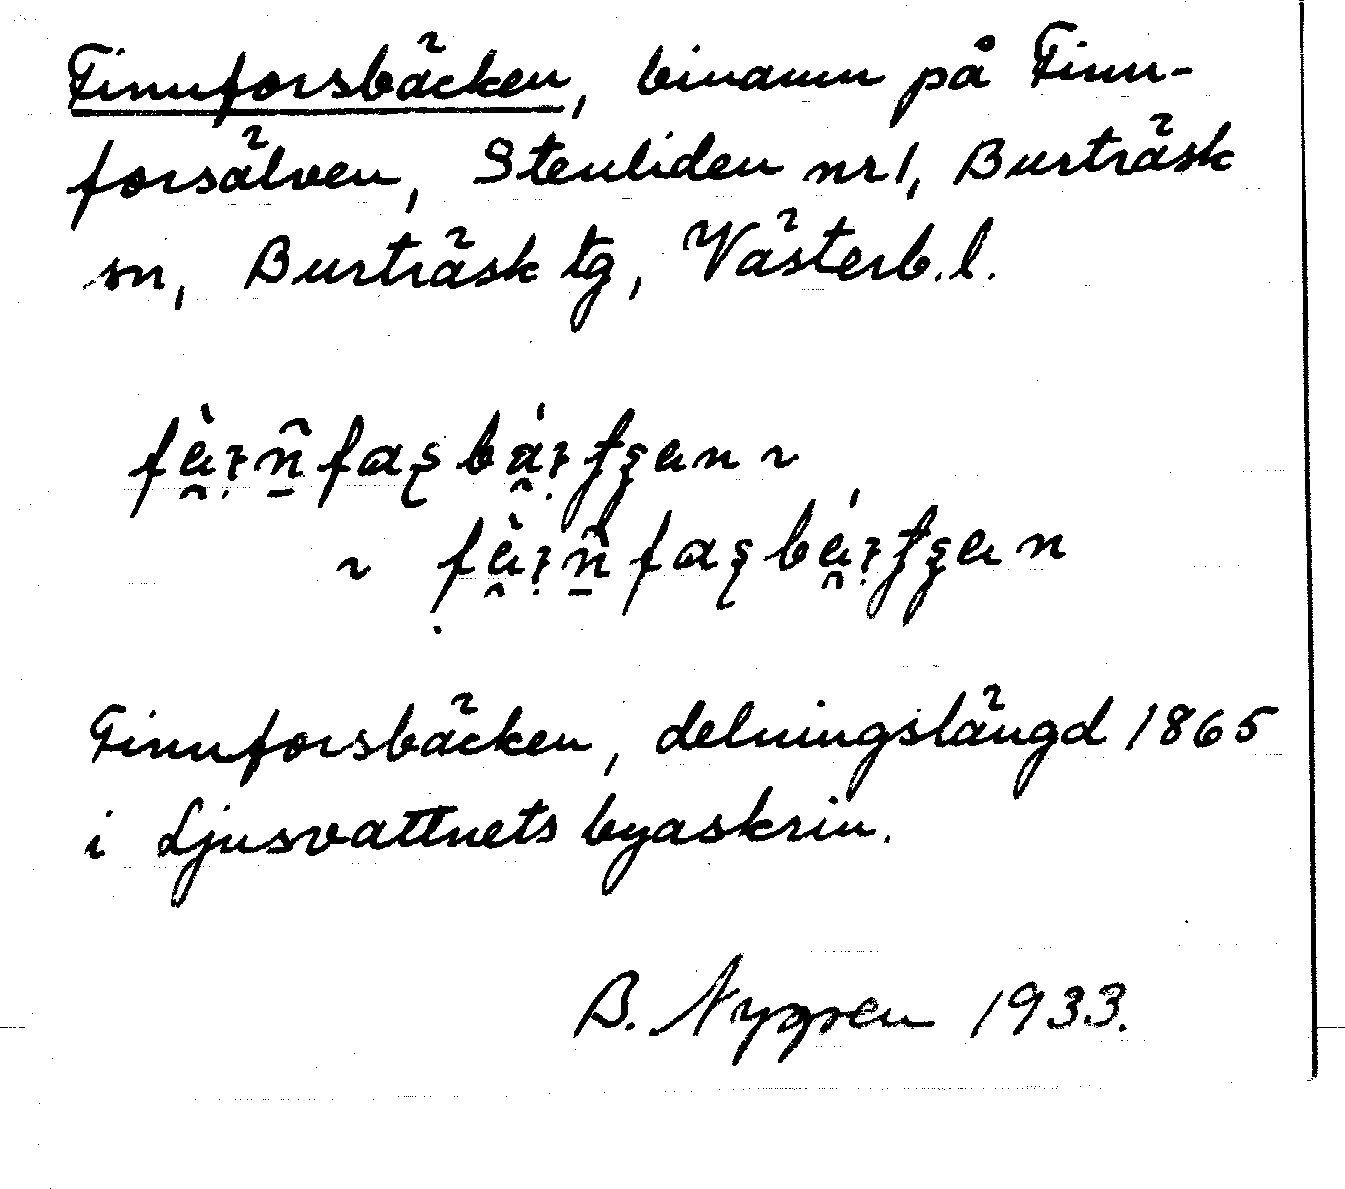 Finnforsbäcken, binamn på Finn-
forsälven, Stenliden nr 1, Burträsk
sn, Burträsk tg, Västerb. l.
Finnforsbäcken, delningslängd 1865
i Ljusvattnets byaskrin.
B. Nygren 1933.